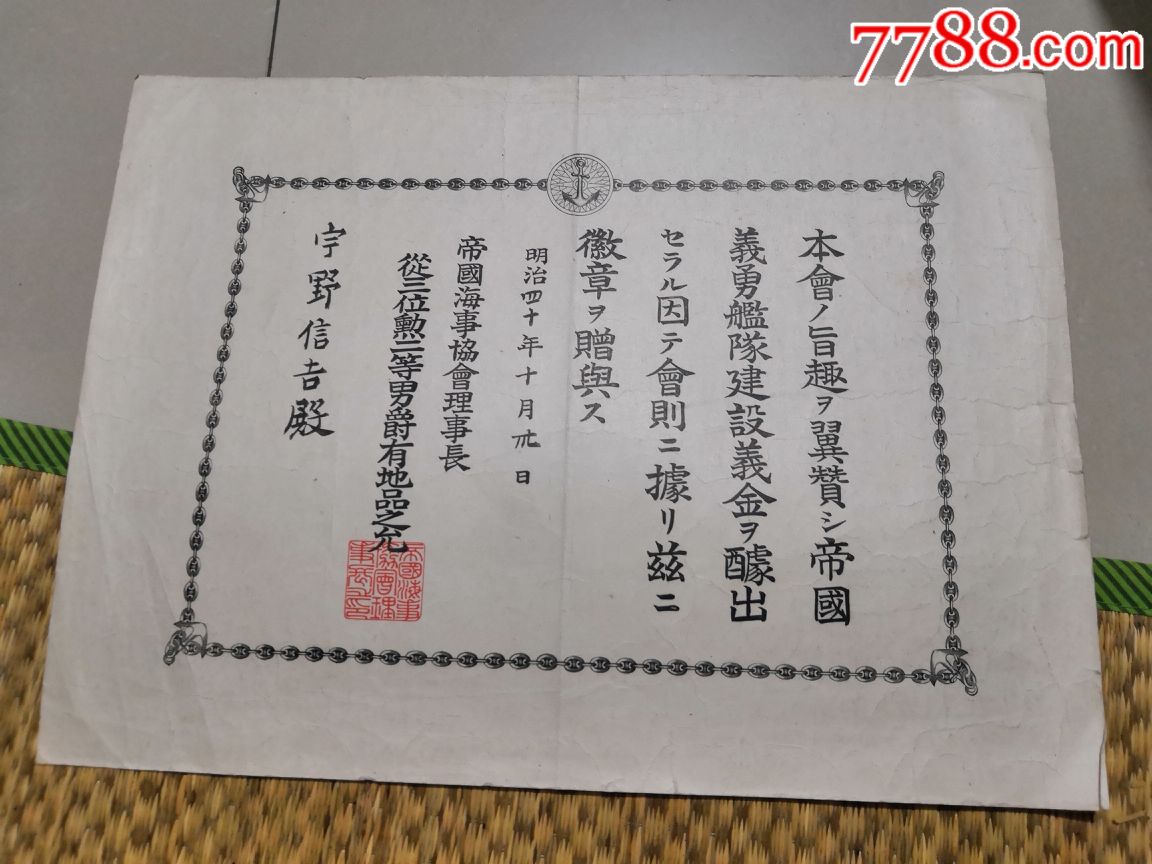 7788.com
本會ノ旨趣ヲ翼贊シ帝國
義勇艦隊建設義金ヲ醵出
セラル因テ會則ニ據リ茲ニ
徽章ヲ贈與ス
明治四十年十月卅日
帝國海事協會理事長
從三位勲二等男爵有地品之允
帝國海事
協會理
事長之印
宇野信吉殿